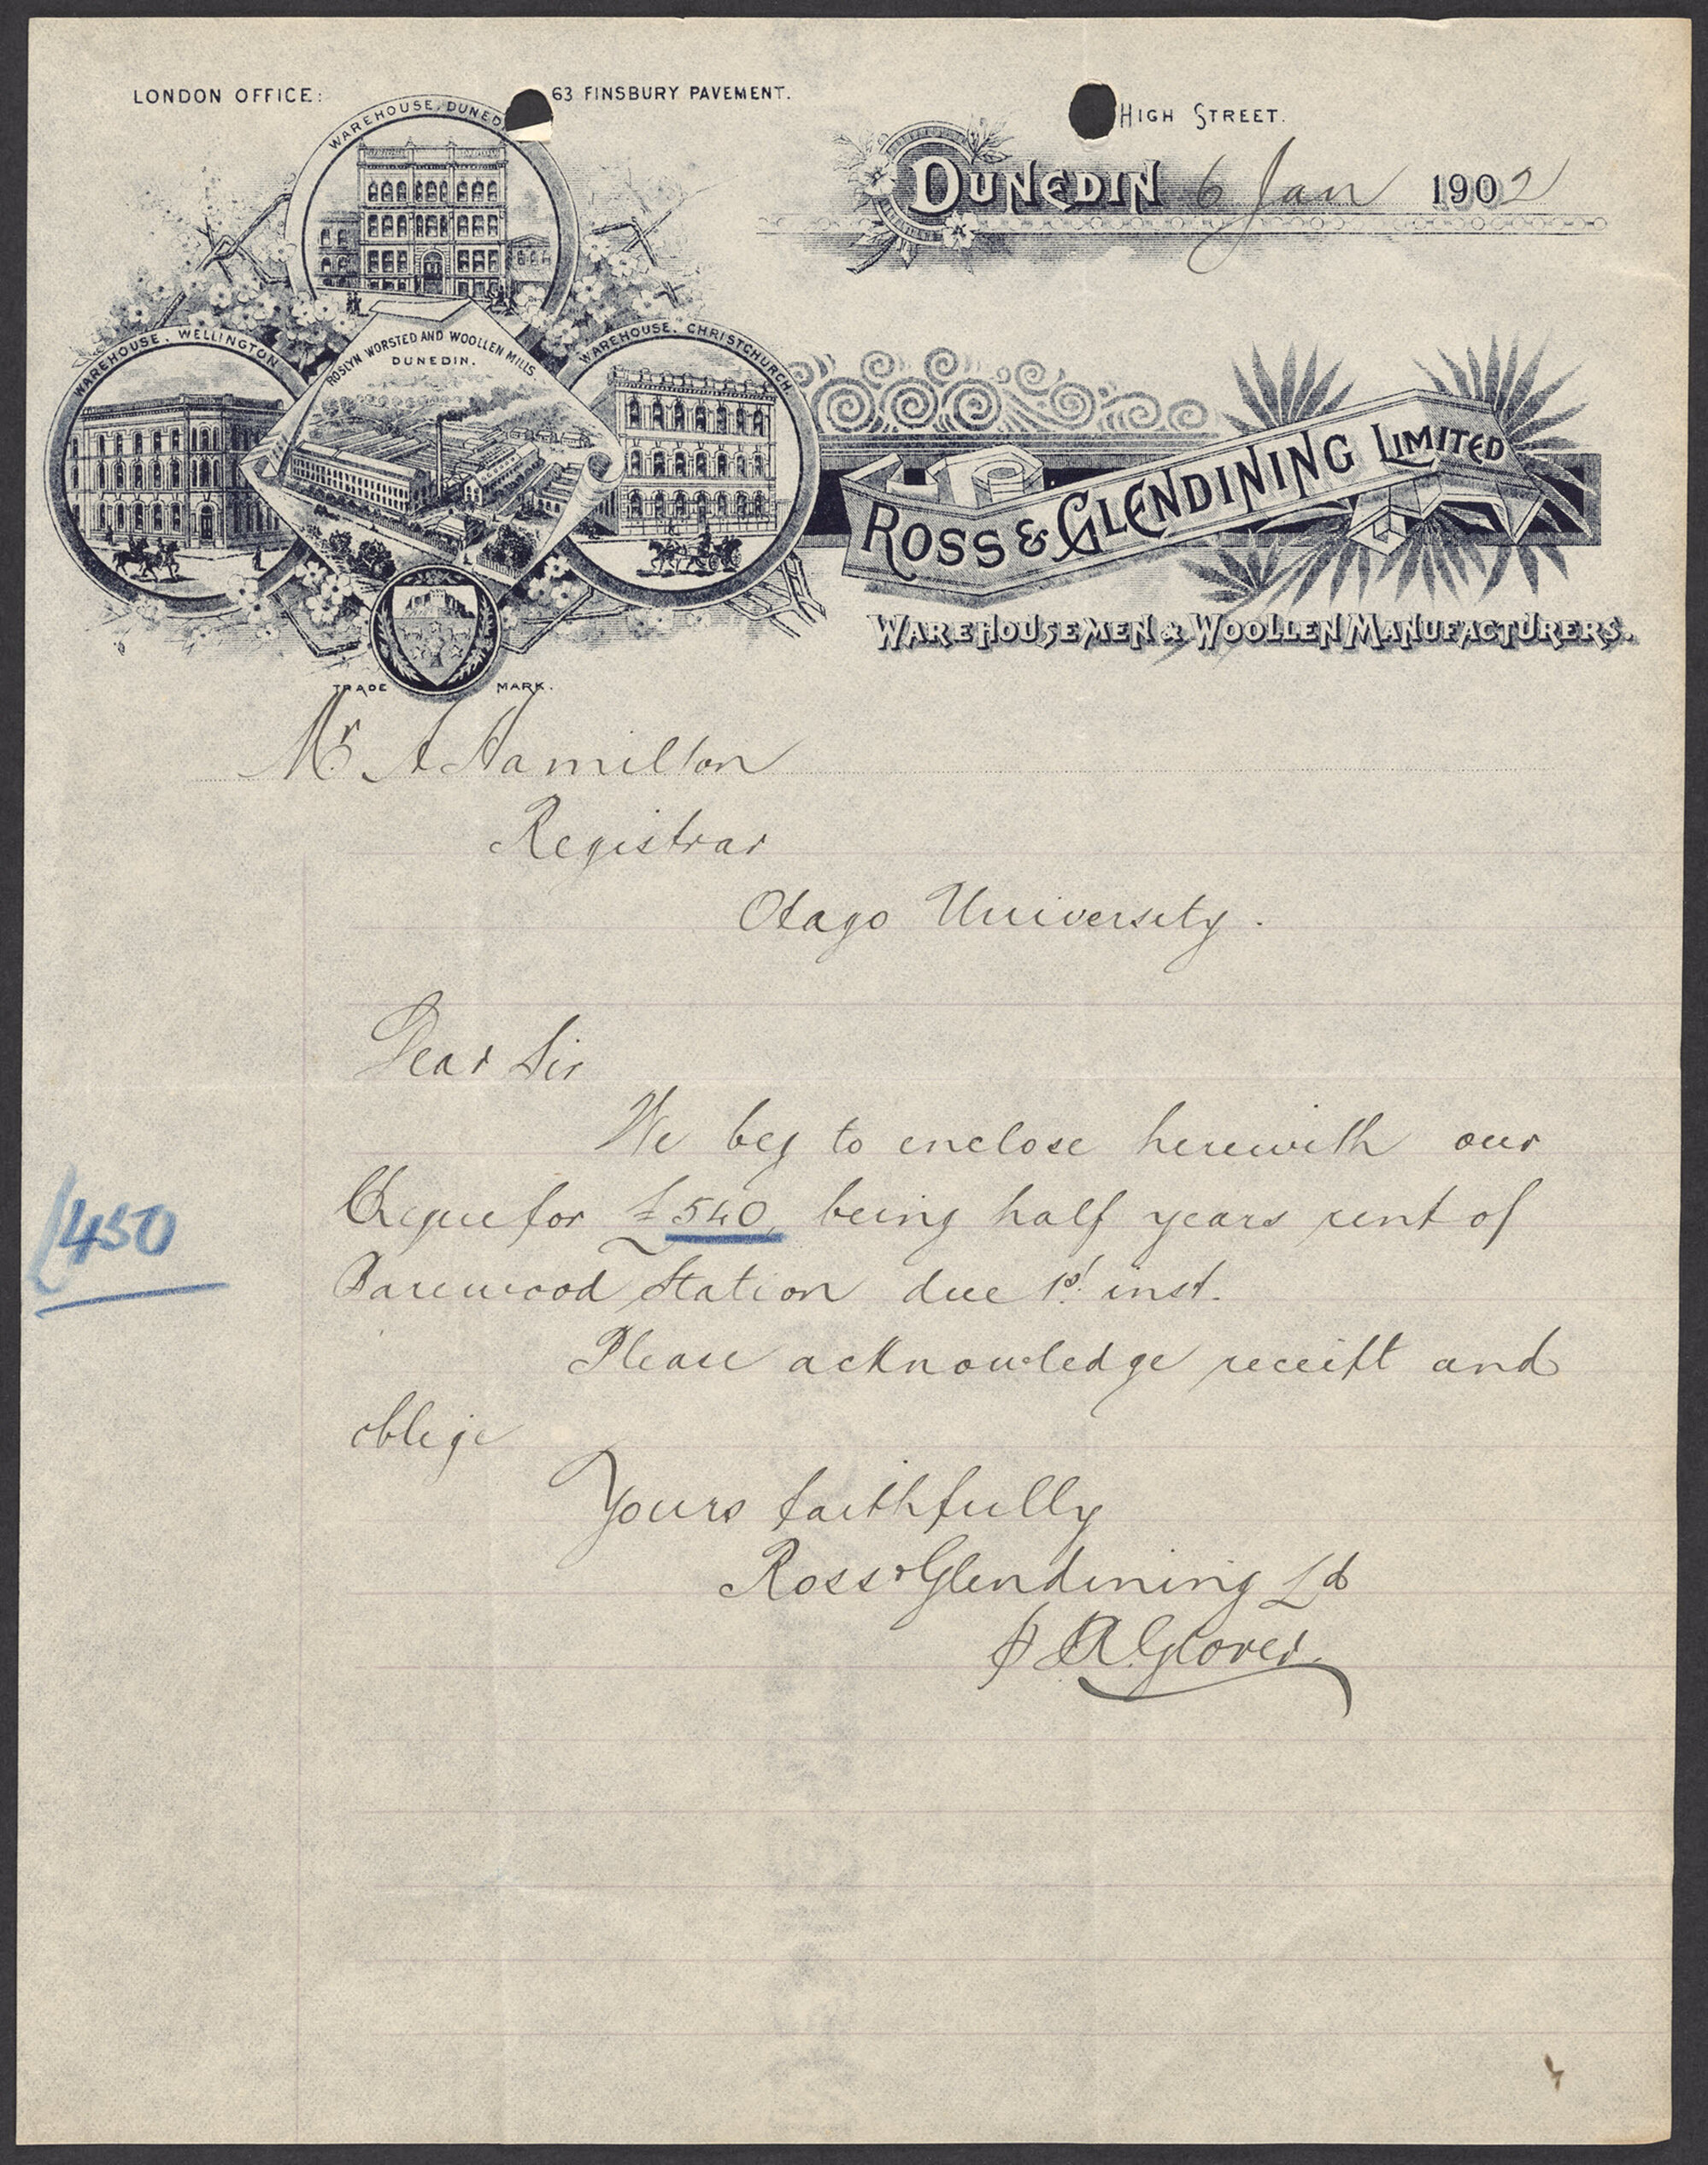 LONDON OFFICE: 63 FINSBURY PAVEMENT.
HIGH STREET.
DUNEDIN 6 Jan 1902
WAREHOUSE, DUNED
WAREHOUSE, WELLINGTON
ROSLYN WORSTED AND WOOLLEN MILLS
DUNEDIN.
WAREHOUSE, CHRISTCHURCH
ROSS & GLENDINING LIMITED
WAREHOUSEMEN & WOOLLEN MANUFACTURERS.
TRADE MARK.
Mr A Hamilton
Registrar
Otago University.
Dear Sir
We beg to enclose herewith our
Cheque for £540, being half years rent of
Barewood Station due 1st inst.
Please acknowledge receipt and
oblige
Yours faithfully
Ross & Glendining Ld
p A. Glover
450